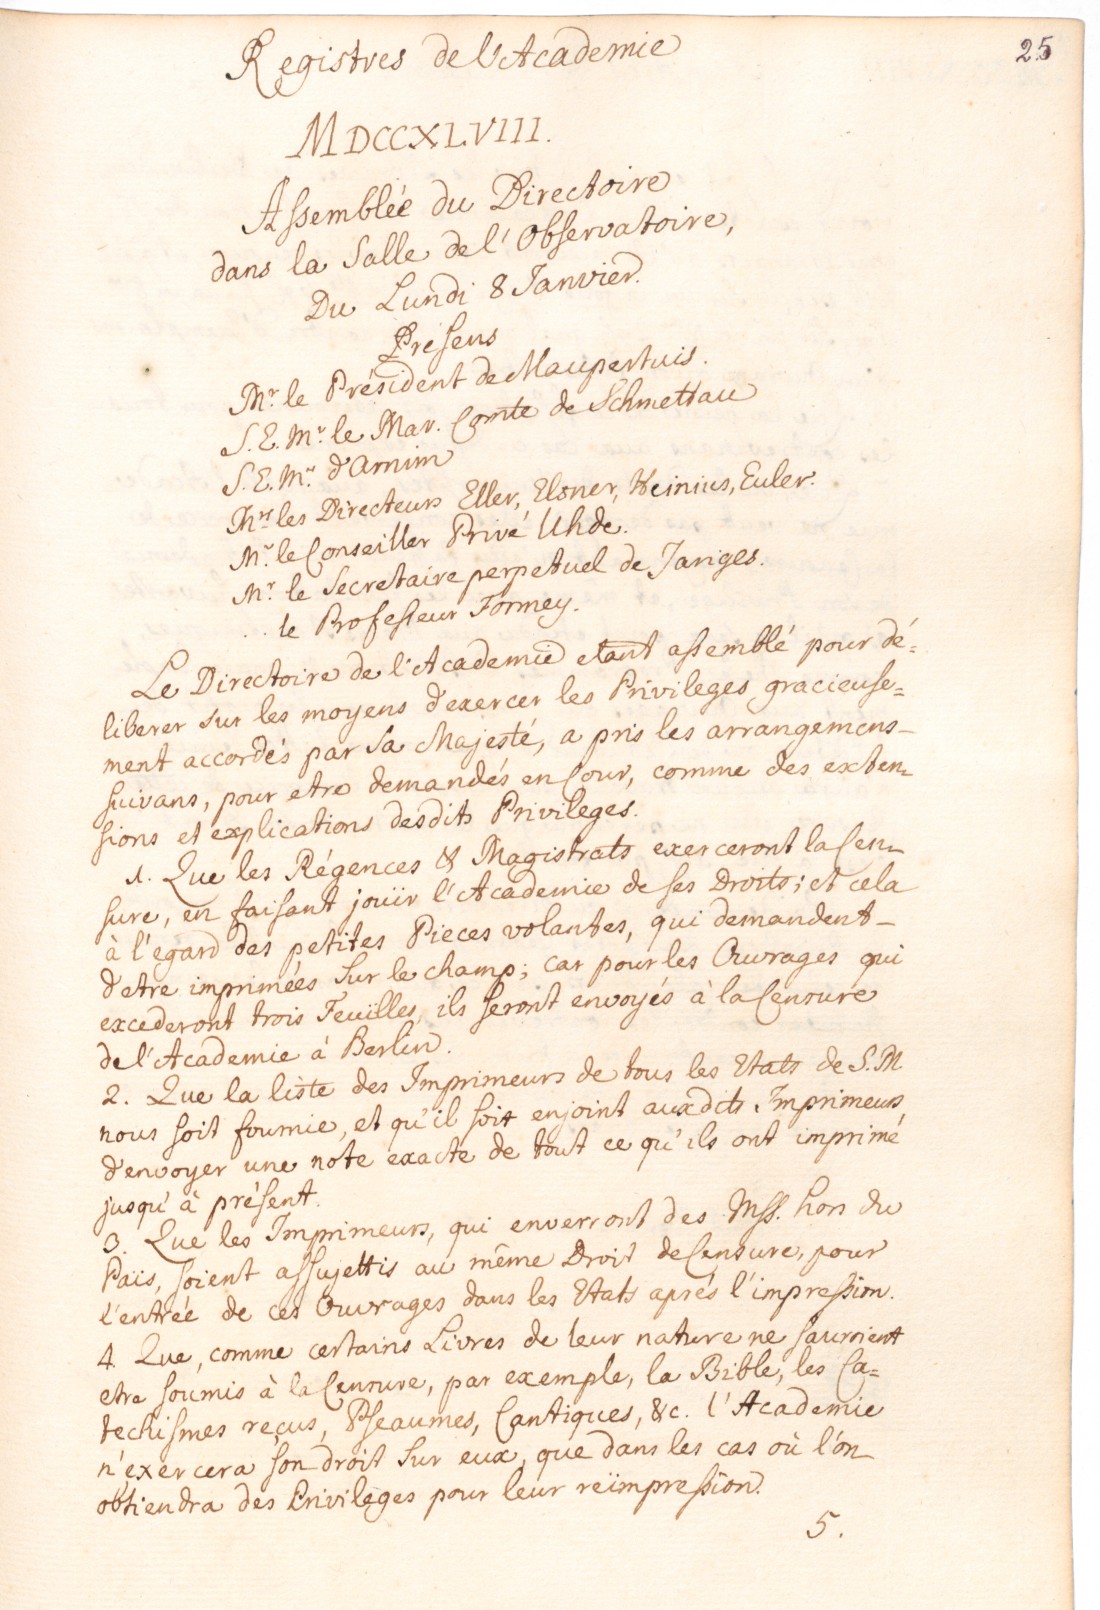 25
Registres de l'Academie
MDCCXLVIII.
Assemblée du Directoire
dans la Salle de l'Observatoire,
Du Lundi 8 Janvier.
Présens
Mr. le Président de Maupertuis.
S. E. Mr. le Mar. Comte de Schmettau
S. E. Mr. d'Arnim
Mrs les Directeurs Eller, Elsner, Heinius, Euler.
Mr. le Conseiller Privé Uhde.
Mr. le Secretaire perpetuel de Jariges.
.. le Professeur Formey.
Le Directoire de l'Academie etant assemblé pour dé=
liberer sur les moyens d'exercer les Privileges gracieuse=
ment accordés par Sa Majesté, a pris les arrangemens
suivans, pour etre demandés en Cour, comme des exten=
sions et explications desdits Privileges.
1. Que les Régences & Magistrats exerceront la Cen=
sure, en faisant jouïr l'Academie de ses Droits; et cela
à l'egard des petites Pieces volantes, qui demandent
d'etre imprimées sur le champ; car pour les Ouvrages qui
excederont trois Feuïlles, ils seront envoyés à la Censure
de l'Academie à Berlin.
2. Que la liste des Imprimeurs de tous les Etats de S. M
nous soit fournie, et qu'il soit enjoint auxdits Imprimeurs,
d'envoyer une note exacte de tout ce qu'ils ont imprimé
jusqu'à présent.
3. Que les Imprimeurs, qui enverront des Mss. hors du
Païs, soient assujettis au même Droit de Censure, pour
l'entrée de ces Ouvrages dans les Etats aprés l'impression.
4. Que, comme certains Livres de leur nature ne sauroient
etre soumis à la Censure, par exemple, la Bible, les Ca=
techismes reçus, Pseaumes, Cantiques, &c. l'Academie
n'exercera son droit sur eux, que dans les cas où l'on
obtiendra des Privileges pour leur reïmpression.
5.